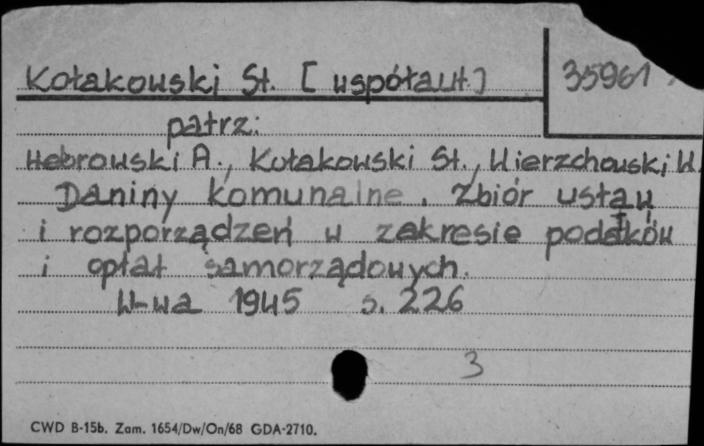 Kołakowski St. [współaut.] 35961
patrz:
Hebrowski A., Kołakowski St., Wierzchowski W
Daniny komunalne. Zbiór ustaw
i rozporządzeń w zakresie podatków
i opłat samorządowych.
W-wa 1945 s. 226
3
CWD B-15b. Zam. 1654/Dw/On/68 GDA-2710.